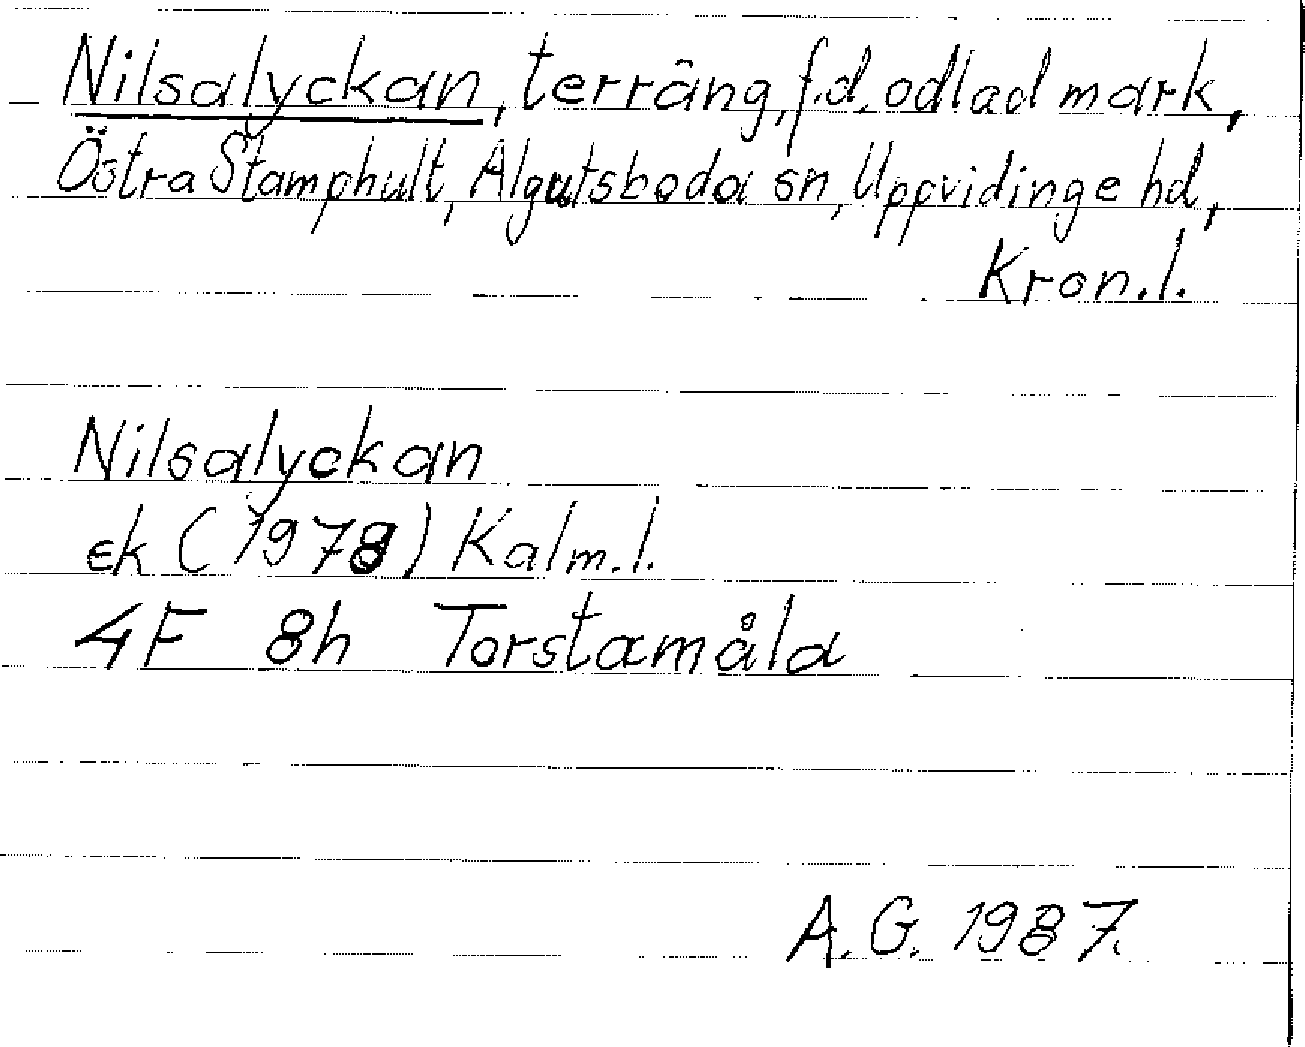 Nilsalyckan, terräng, f.d. odlad mark,
Östra Stamphult, Algutsboda sn, Uppvidinge hd,
Kron.l.
Nilsalyckan
ek (1978) Kalm.l.
4F 8h Torstamåla
A.G. 1987.